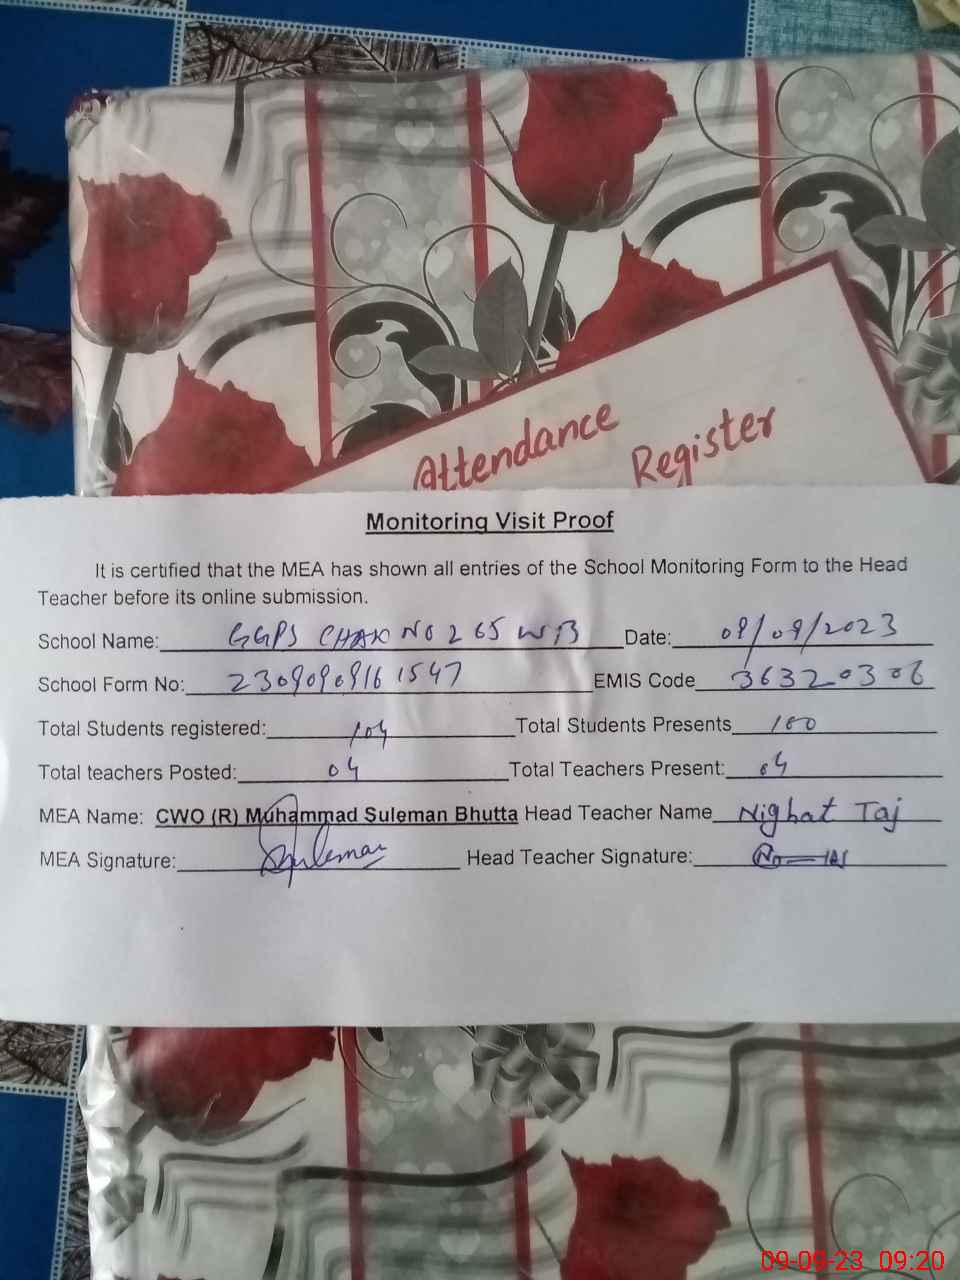 Attendance
Register
Monitoring Visit Proof
It is certified that the MEA has shown all entries of the School Monitoring Form to the Head
Teacher before its online submission.
School Name: GGPS CHAK NO 265 WB Date: 09/09/2023
School Form No: 23090909161547 EMIS Code 36320306
Total Students registered: 104 Total Students Presents 100
Total teachers Posted: 04 Total Teachers Present: 04
MEA Name: CWO (R) Muhammad Suleman Bhutta Head Teacher Name Nighat Taj
MEA Signature: Suleman Head Teacher Signature:
09-09-23 09:20